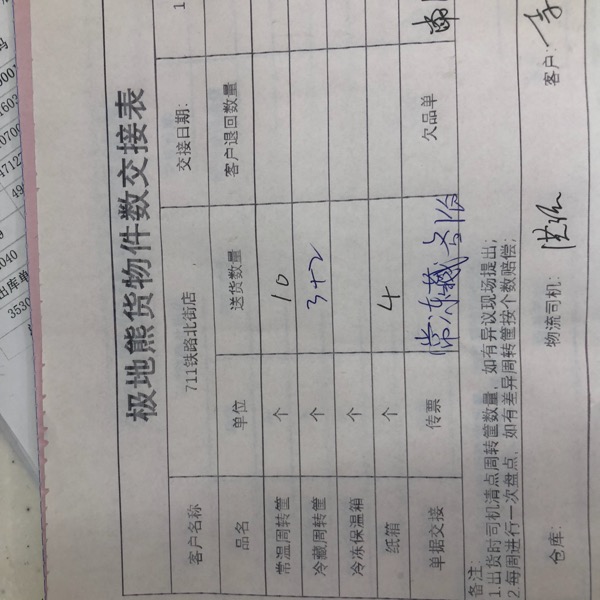 极地熊货物件数交接表
客户名称 711铁路北街店 交接日期: 1
品名 单位 送货数量 客户退回数量
常温周转筐 个 10
冷藏周转筐 个 3+2
冷冻保温箱 个
纸箱 个 4
单据交接 传票 欠品单
备注:
1.出货时司机清点周转筐数量，如有异议现场提出;
2.每周进行一次盘点，如有差异周转筐按个数赔偿;
仓库: 物流司机: 客户:
出库单